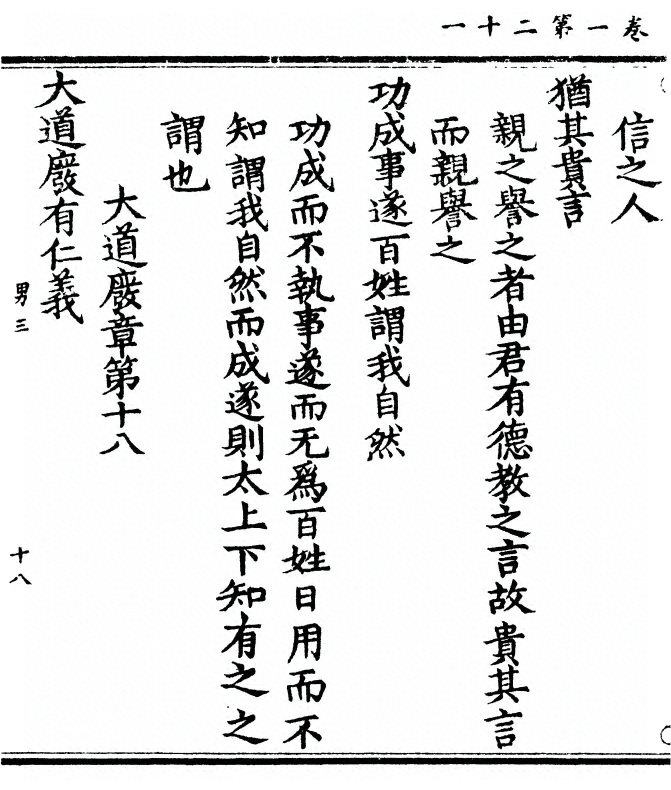 卷一第二十一
信之人
猶其貴言
親之譽之者由君有德教之言故貴其言
而親譽之
功成事遂百姓謂我自然
功成而不執事遂而无爲百姓日用而不
知謂我自然而成遂則太上下知有之之
謂也
大道廢章第十八
大道廢有仁義
男三
十八